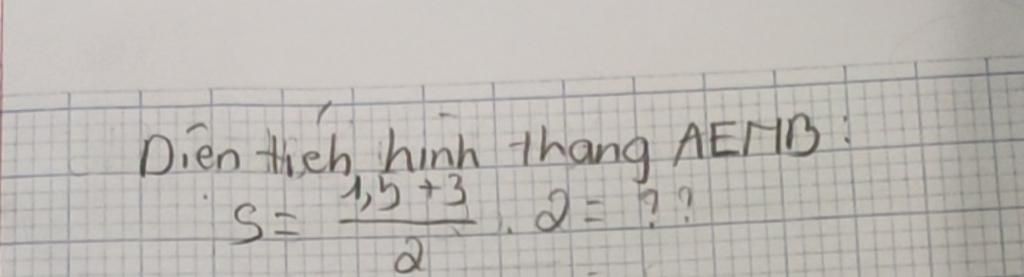 Diện tích hình thang AEMB:
S = \frac{1,5 + 3}{2} . 2 = ??